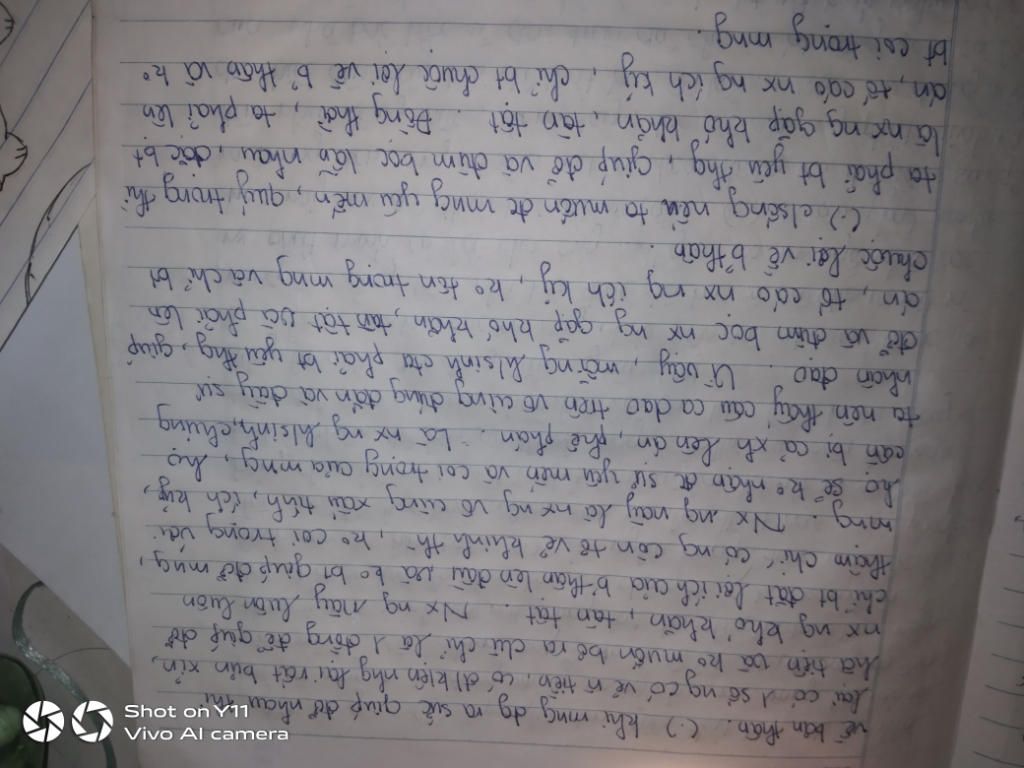 về bản thân. (-) khi mng đg ra sức giúp đỡ nhau thì
lại có 1 số ng có vẻ n tiền, có đ/kiện nhg lại rất bủn xỉn,
hà tiện và kº muốn bỏ ra dù chỉ là 1 đồng để giúp đỡ
nx ng khó khăn, tàn tật. Nx ng này luôn luôn
chỉ bt đặt lợi ích của b thân lên đầu và kº bt giúp đỡ mng,
thậm chí có ng còn tỏ vẻ khinh thg, kº coi trọng vài
mng. Nx ng này là nx ng vô cùng xấu tính, ích kỷ,
họ sẽ kº nhận đc sự yêu mến và coi trọng của mng, họ
cần bị cả xh lên án, phê phán. Là nx ng h/sinh, chúng
ta nên thấy câu ca dao trên vô cùng đúng đắn và đầy sự
nhân đạo. Vì vậy, mỗi ng h/sinh cta phải bt yêu thg, giúp
đỡ và đùm bọc nx ng gặp khó khăn, tàn tật và phải lên
án, tố cáo nx ng ích kỷ, kº tôn trọng mng và chỉ bt
chuộc lợi về b thân.
(-) c/sống nếu ta muốn đc mng yêu mến, quý trọng thì
ta phải bt yêu thg, giúp đỡ và đùm bọc lẫn nhau, đặc bt
là nx ng gặp khó khăn, tàn tật. Đồng thời, ta phải lên
án, tố cáo nx ng ích kỷ, chỉ bt chuộc lợi về b thân và kº
bt coi trọng mng.
Shot on Y11
Vivo AI camera